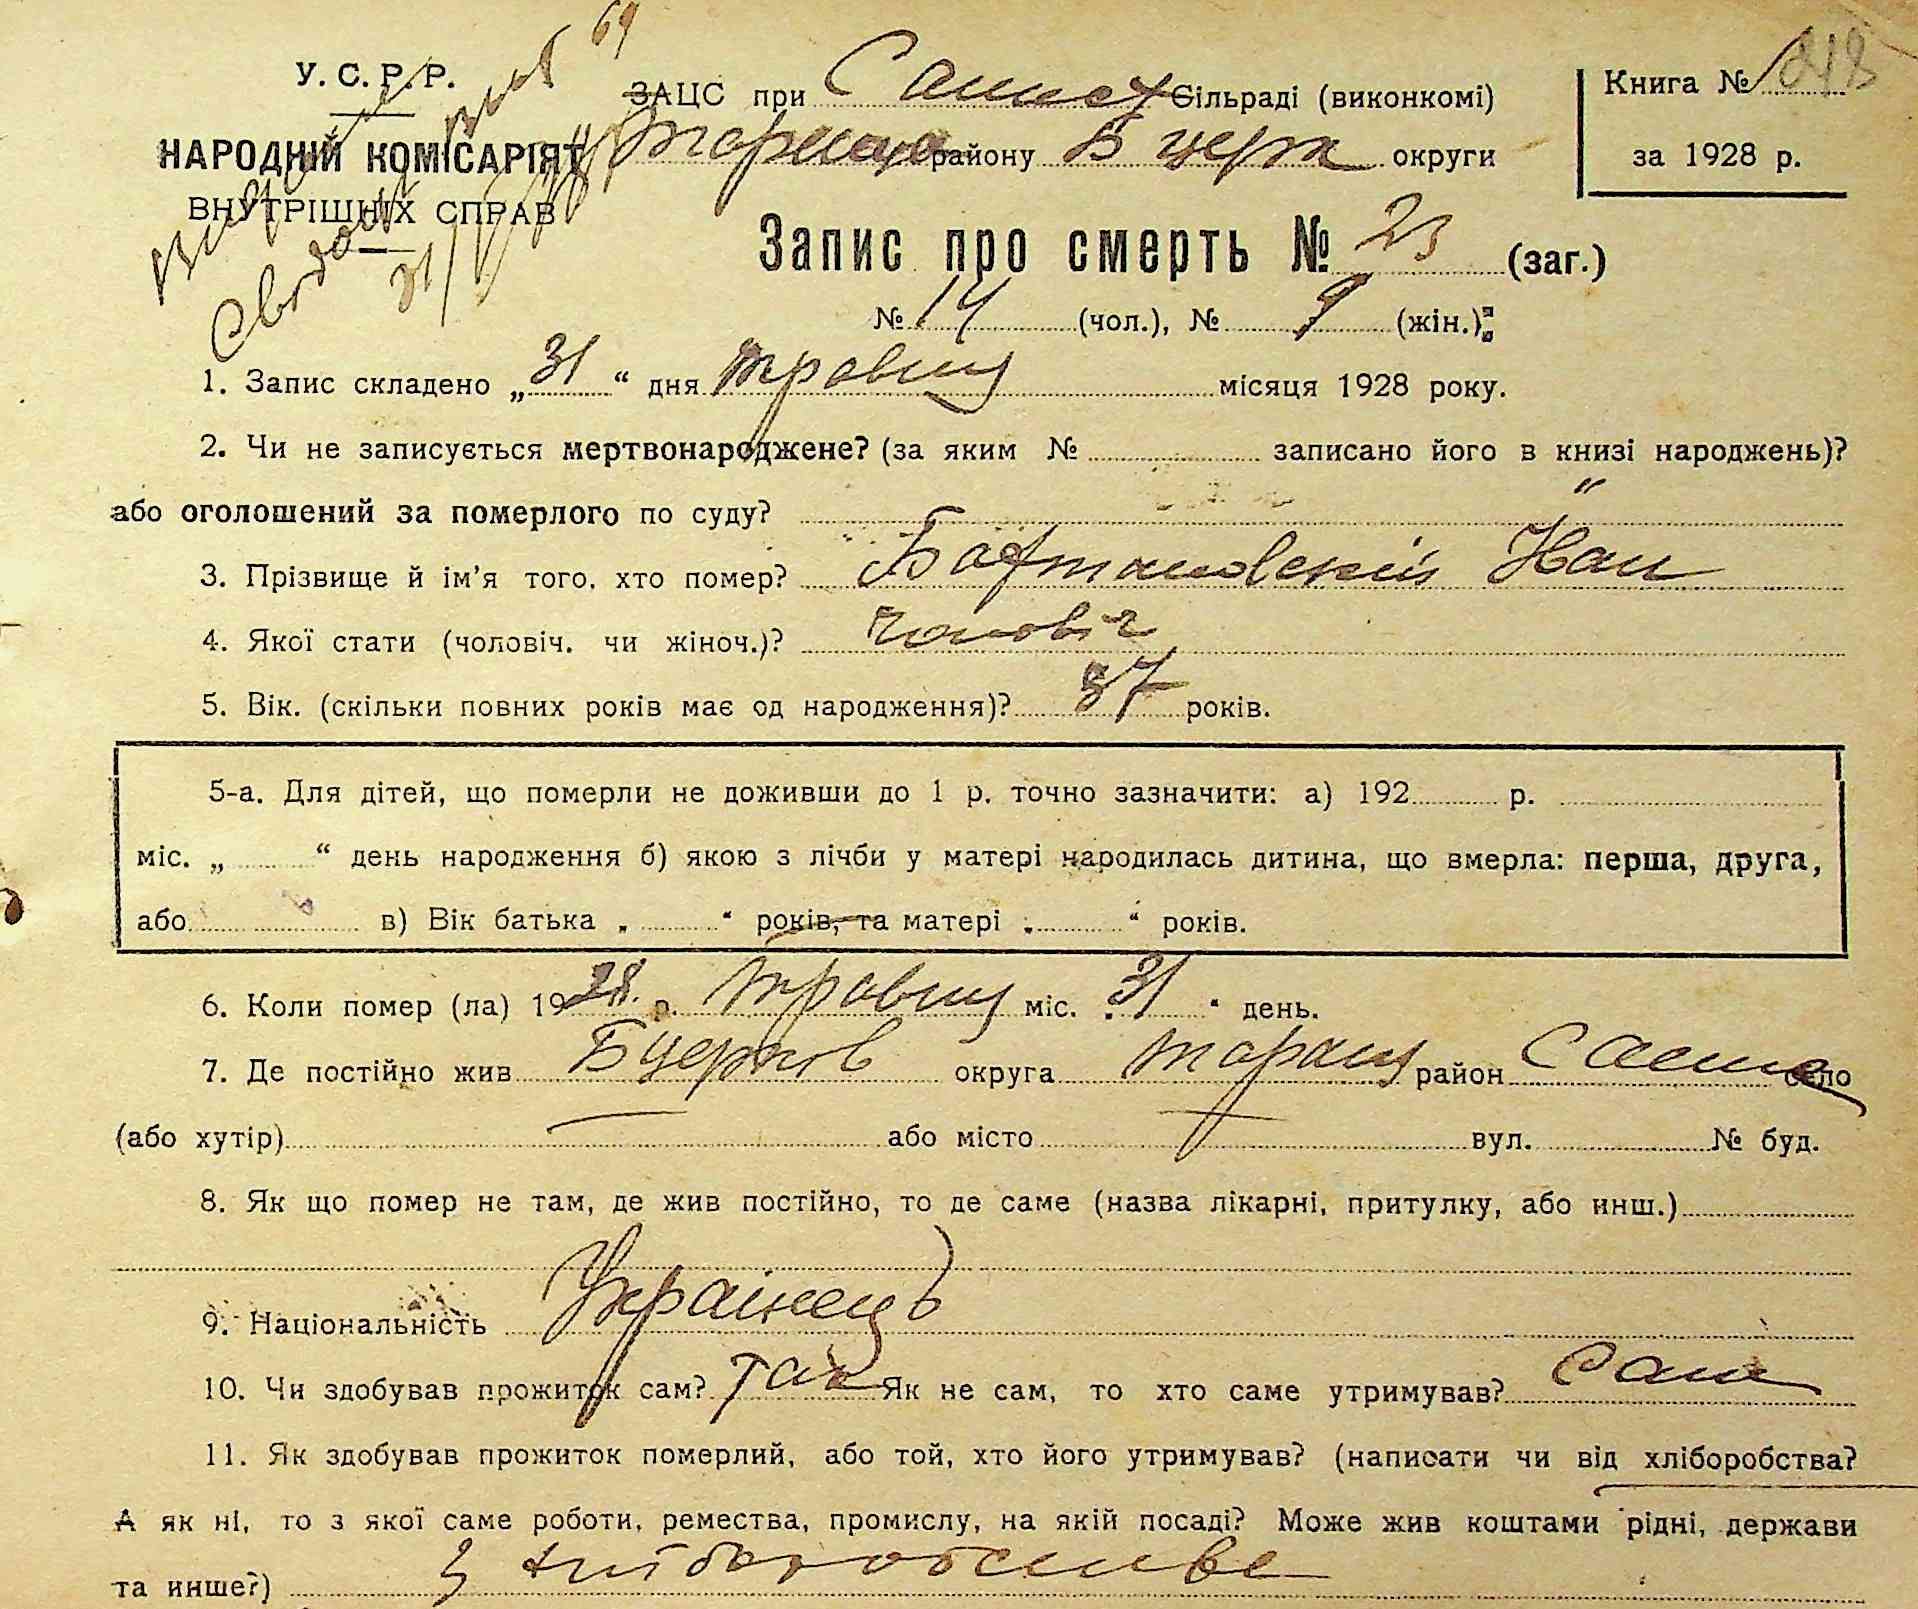 У. С. Р. Р.
НАРОДНІЙ КОМІСАРІЯТ
ВНУТРІШНІХ СПРАВ
69
31/V
ЗАЦС при Сільраді (виконкомі)
району Б церк округи
Книга № 218
за 1928 р.
Запис про смерть № 23 (заг.)
№ 14 (чол.), № 9 (жін.):
1. Запис складено „31“ дня травня місяця 1928 року.
2. Чи не записується мертвонароджене? (за яким № записано його в книзі народжень)?
або оголошений за померлого по суду?
3. Прізвище й ім’я того, хто помер? Іван
4. Якої стати (чоловіч. чи жіноч.)? чоловіч
5. Вік. (скільки повних років має од народження)? 37 років.
5-а. Для дітей, що померли не доживши до 1 р. точно зазначити: а) 192 р.
міс. „ “ день народження б) якою з лічби у матері народилась дитина, що вмерла: перша, друга,
або в) Вік батька „ “ років, та матері „ “ років.
6. Коли помер (ла) 1928. р. травня міс. „31“ день.
7. Де постійно жив Бцерков округа таращ район село
(або хутір) або місто вул. № буд.
8. Як що помер не там, де жив постійно, то де саме (назва лікарні, притулку, або инш.)
9. Національність Українець
10. Чи здобував прожиток сам? Так Як не сам, то хто саме утримував? Сам
11. Як здобував прожиток померлий, або той, хто його утримував? (написати чи від хліборобства?
А як ні, то з якої саме роботи, ремества, промислу, на якій посаді? Може жив коштами рідні, держави
та инше?) З хліборобства